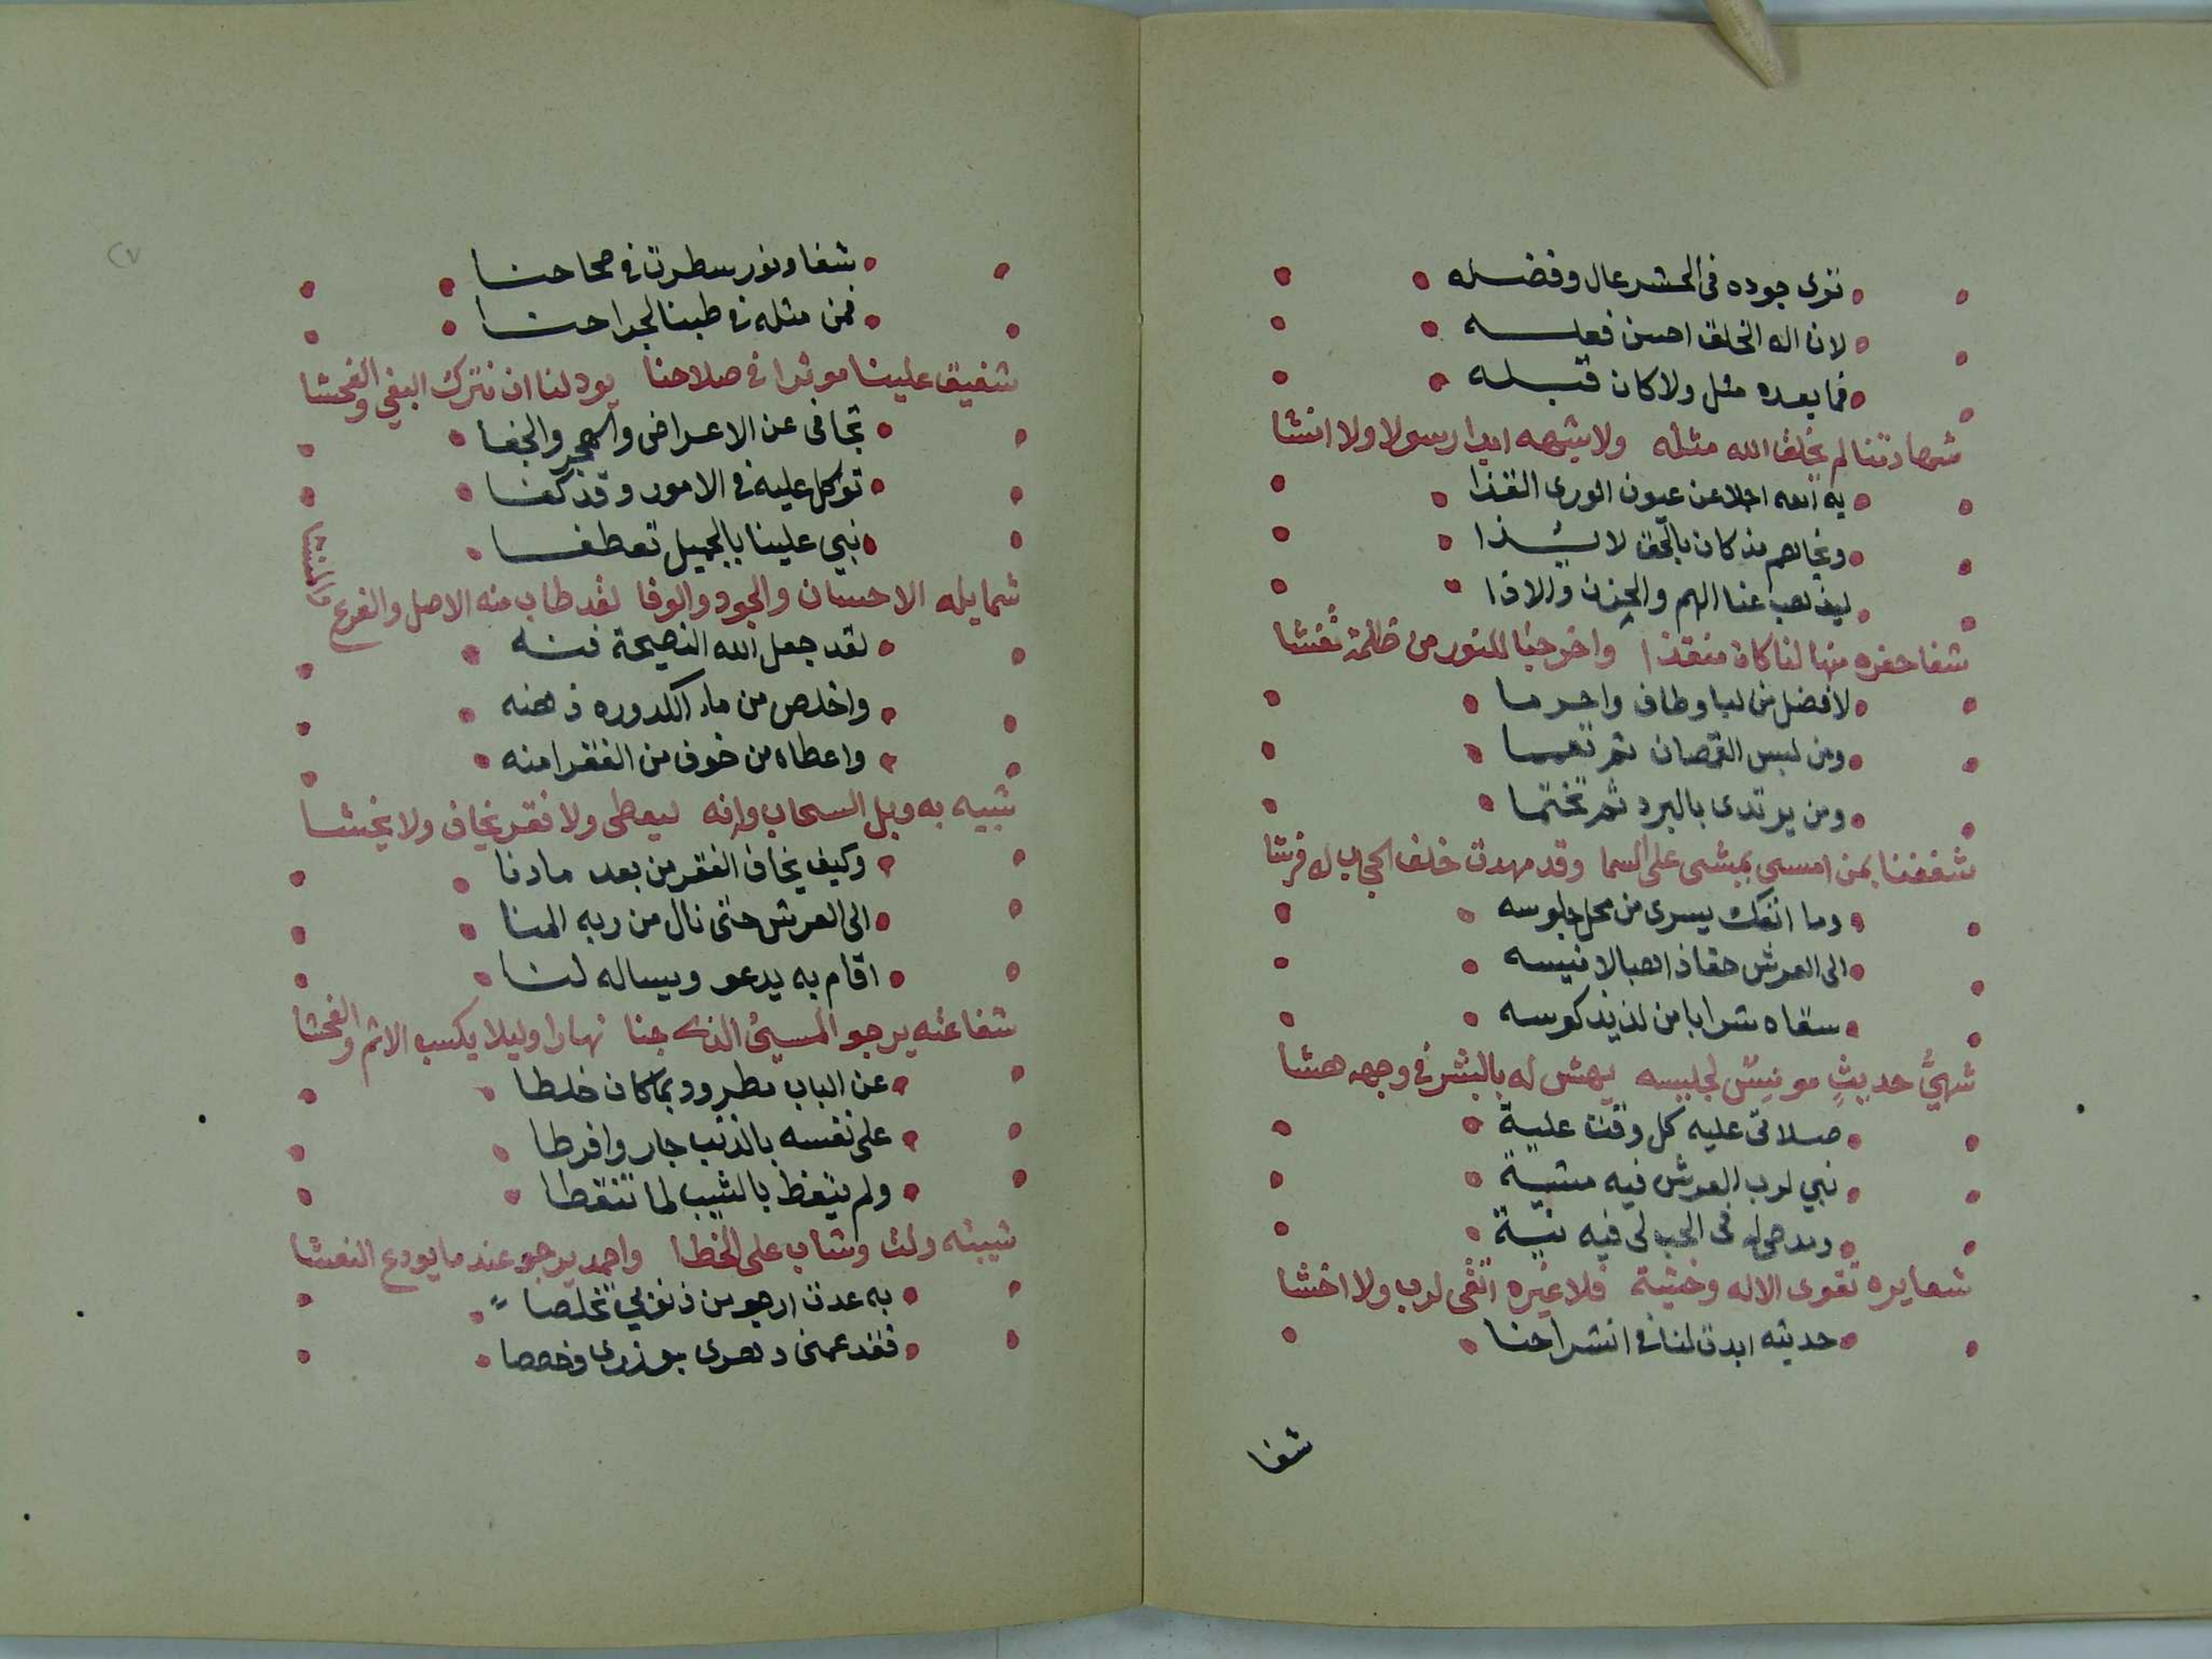 ترى جوده فى الحشر عال وفضله
لان اله الخلق احسن فعله
فما بعده مثل ولا كان قبله
شهادتنا لم يخلق الله مثله ولا يشبهه ابدا رسولا ولا انشا
به الله اجلا عن عيون الورى القذا
ونجاهم مذ كان بالحق لا يشذا
ليذهب عنا الهم والحزن والاذا
شفا حفره منها لنا كان منقذا واخرجنا للنور من ظلمة تغشا
لافضل من لبا وطاف واحرما
ومن لبس القمصان ثم تعمما
ومن يرتدى بالبرد ثم تختما
شغفنا بمن امسى يمشى على السما وقد مهدت خلف الحجاب له فرشا
وما انفك يسرى من محل جلوسه
الى العرش حقا ذاهبا لانيسه
سقاه شرابا من لذيذ كوسه
شهيُّ حديثٍ مونِسٌ لجليسه يهش له بالبشر فى وجهه هشا
صلاتى عليه كل وقت علية
نبي لرب العرش فيه مشية
ومدحى له فى الحب لى فيه نية
شعايره تقوى الاله وخشية فلا غيره اتقى لرب ولا اخشا
حديثه ابدت لنا فى انشراحنا
شفا
شفا ونور سطرت فى صحاحنا
فمن مثله فى طبنا لجراحنا
شفيق علينا موثرا فى صلاحنا يود لنا ان نترك البغي والفحشا
تجافى عن الاعراض والهجر والجفا
توكل عليه فى الامور وقد كفا
نبي علينا بالجميل تعطفا
شمايله الاحسان والجود والوفا لقد طاب منه الاصل والفرع والمنشا
لقد جعل الله النصيحة فنه
واخلص من ماء الكدوره ذهنه
واعطاه من خوف من الفقر امنه
شبيه به وبل السحاب وانه ليعطى ولا فقر يخاف ولا يخشا
وكيف يخاف الفقر من بعد ما دنا
الى العرش حتى نال من ربه المنا
اقام به يدعو ويساله لنا
شفاعته يرجو المسيئ الذى جنا نهارا وليلا يكسب الاثم والفحشا
عن الباب مطرود بما كان خلطا
على نفسه بالذنب جار وافرطا
ولم يتعظ بالشيب لما تنقطا
شبيبته ولت وشاب على الخطا واحمد يرجو عند ما يودع النعشا
به عدت ارجو من ذنوبي تخلصا
فقد عمنى دهرى بوزرى وخصصا